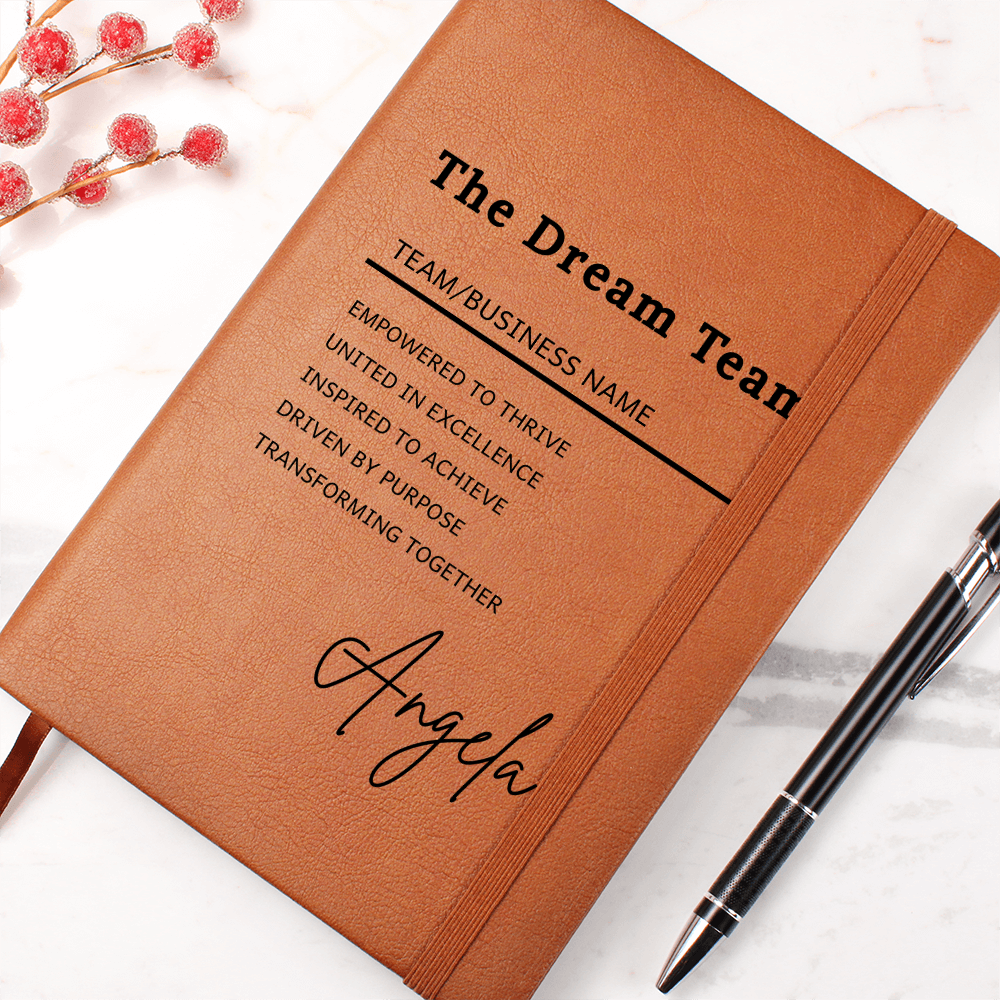 The Dream Team
TEAM/BUSINESS NAME
EMPOWERED TO THRIVE
UNITED IN EXCELLENCE
INSPIRED TO ACHIEVE
DRIVEN BY PURPOSE
TRANSFORMING TOGETHER
Angela